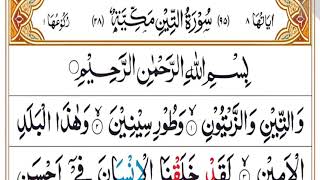 اٰيَاتُهَا ٨ (٩٥) سُوْرَةُ التِّيْنِ مَكِّيَّةٌ (٢٨) رُكُوْعُهَا ١
بِسْمِ اللّٰهِ الرَّحْمٰنِ الرَّحِيْمِ
وَالتِّيْنِ وَالزَّيْتُوْنِ ۙ﴿١﴾ وَطُوْرِ سِيْنِيْنَ ۙ﴿٢﴾ وَهٰذَا الْبَلَدِ
الْاَمِيْنِ ۙ﴿٣﴾ لَقَدْ خَلَقْنَا الْاِنْسَانَ فِيْٓ اَحْسَنِ